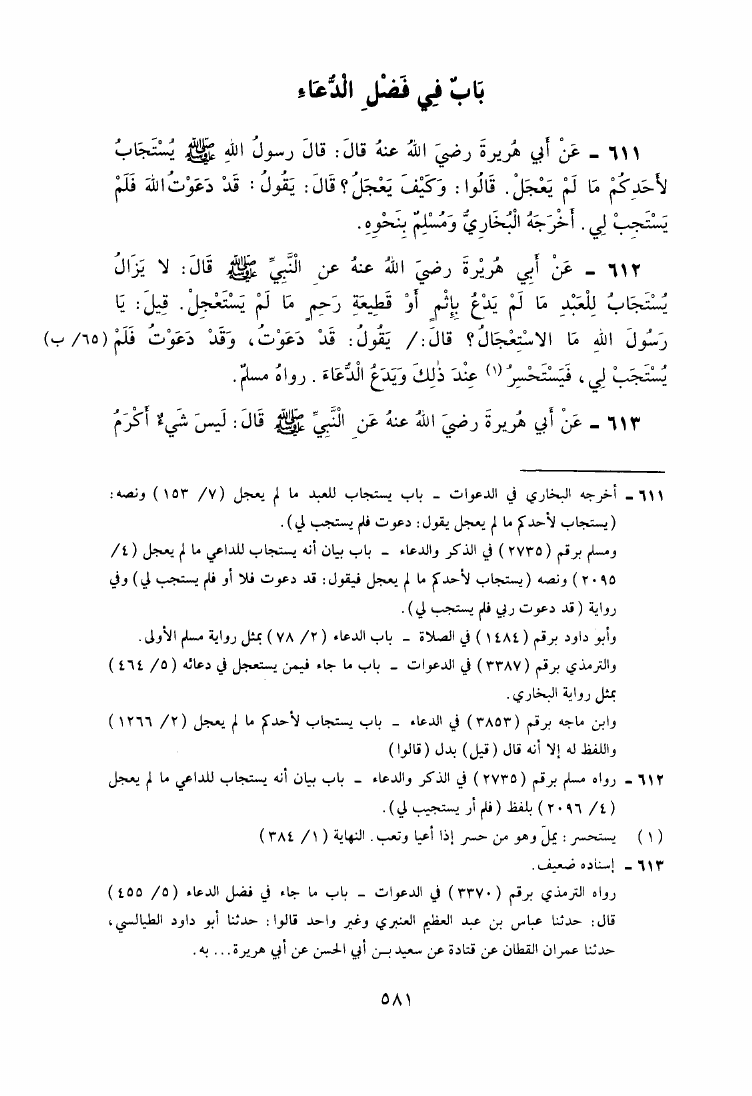 بَابٌ فِي فَضْلِ الْدُّعَاءِ
٦١١ ـ عَنْ أَبي هُرِيرةَ رضيَ اللهُ عنه قالَ: قالَ رسولُ اللهِ ﷺ يُسْتَجَابُ
لأَحَدِكُمْ مَا لَمْ يَعْجَلْ. قَالُوا: وَكَيْفَ يَعْجَلُ؟ قَالَ: يَقُولُ: قَدْ دَعَوْتُ اللهَ فَلَمْ
يَسْتَجِبْ لِي. أَخْرَجَهُ الْبُخَارِيُّ وَمُسْلِمٌ بِنَحْوِهِ.
٦١٢ ـ عَنْ أَبِي هُرَيْرةَ رضيَ اللهُ عنهُ عنِ الْنَّبِيِّ ﷺ قَالَ: لا يَزَالُ
يُسْتَجَابُ لِلْعَبْدِ مَا لَمْ يَدْعُ بِإِثْمٍ أَوْ قَطِيعَةِ رَحِمٍ مَا لَمْ يَسْتَعْجِلْ. قِيلَ: يَا
رَسُولَ اللهِ مَا الاسْتِعْجَالُ؟ قالَ:/ يَقُولُ: قَدْ دَعَوْتُ، وَقَدْ دَعَوْتُ فَلَمْ (٦٥/ ب)
يُسْتَجَبْ لِي، فَيَسْتَحْسِرُ (١) عِنْدَ ذٰلِكَ وَيَدَعُ الْدُّعَاءَ. رواهُ مسلمٌ.
٦١٣ ـ عَنْ أَبي هُرِيرةَ رضيَ اللهُ عنهُ عَنِ الْنَّبِيِّ ﷺ قَالَ: لَيسَ شَيءٌ أَكْرَمُ
٦١١ ـ أخرجه البخاري في الدعوات ـ باب يستجاب للعبد ما لم يعجل (٧/ ١٥٣) ونصه:
(يستجاب لأحدكم ما لم يعجل يقول: دعوت فلم يستجب لي).
ومسلم برقم (٢٧٣٥) في الذكر والدعاء ـ باب بيان أنه يستجاب للداعي ما لم يعجل (٤/
٢٠٩٥) ونصه (يستجاب لأحدكم ما لم يعجل فيقول: قد دعوت فلا أو فلم يستجب لي) وفي
رواية (قد دعوت ربي فلم يستجب لي).
وأبو داود برقم (١٤٨٤) في الصلاة ـ باب الدعاء (٢/ ٧٨) بمثل رواية مسلم الأولى.
والترمذي برقم (٣٣٨٧) في الدعوات ـ باب ما جاء فيمن يستعجل في دعائه (٥/ ٤٦٤)
بمثل رواية البخاري.
وابن ماجه برقم (٣٨٥٣) في الدعاء ـ باب يستجاب لأحدكم ما لم يعجل (٢/ ١٢٦٦)
واللفظ له إلا أنه قال (قيل) بدل (قالوا)
٦١٢ ـ رواه مسلم برقم (٢٧٣٥) في الذكر والدعاء ـ باب بيان أنه يستجاب للداعي ما لم يعجل
(٤/ ٢٠٩٦) بلفظ (فلم أر يستجيب لي).
(١) يستحسر: يملّ وهو من حسر إذا أعيا وتعب. النهاية (١/ ٣٨٤)
٦١٣ ـ إسناده ضعيف.
رواه الترمذي برقم (٣٣٧٠) في الدعوات ـ باب ما جاء في فضل الدعاء (٥/ ٤٥٥)
قال: حدثنا عباس بن عبد العظيم العنبري وغير واحد قالوا: حدثنا أبو داود الطيالسي،
حدثنا عمران القطان عن قتادة عن سعيد بـن أبي الحسن عن أبي هريرة... به.
٥٨١